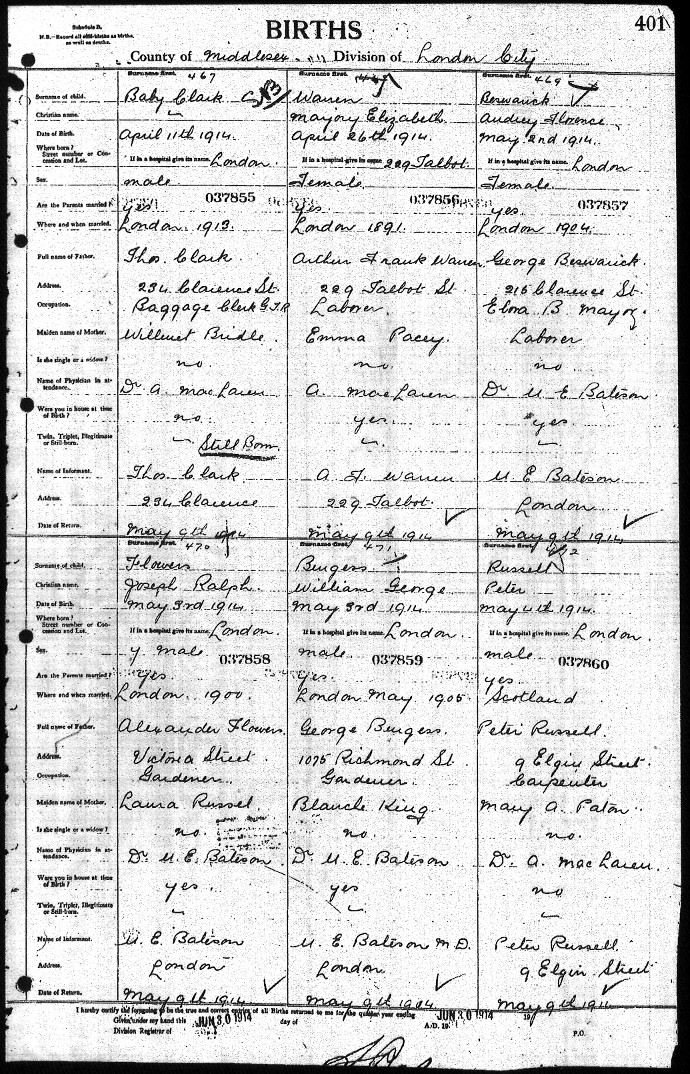 Schedule B.
N.B.—Record all still-births as births, as well as deaths.
BIRTHS
401
County of Middlesex Division of London City
Surname first. 467 Surname first. Surname first. 469
Surname of child. Baby Clark Warren Berwarick
Christian name. Marjory Elizabeth. Audrey Florence
Date of Birth. April 11th 1914. April 26th 1914. May 2nd 1914.
Where born? Street number or Concession and Lot. If in a hospital give its name. London. If in a hospital give its name. 229 Talbot. If in a hospital give its name. London
Sex. male. Female. Female.
037855 037856 037857
Are the Parents married? yes yes. yes.
Where and when married. London 1913. London 1891. London 1904.
Full name of Father. Thos. Clark. Arthur Frank Warren George Berwarick.
Address. 234 Clarence St. 229 Talbot St. 215 Clarence St.
Occupation. Baggage Clerk G.T.R Laborer. Elora B. Mayo
Maiden name of Mother. Willemet Bridle. Emma Pacey. Laborer
Is she single or a widow? no. no. no
Name of Physician in attendence. Dr A. MacLaren A. MacLaren Dr U E Bateson
Were you in house at time of Birth? no. yes. yes.
Twin, Triplet, Illegitimate or Still-born. Still Born.
Name of Informant. Thos. Clark A. F. Warren U E Bateson
Address. 234 Clarence 229 Talbot. London
Date of Return. May 9th 1914 May 9th 1914 May 9th 1914
Surname first. 470 Surname first. 471 Surname first. 472
Surname of child. Flowers Burgess Russell
Christian name. Joseph Ralph. William George Peter
Date of Birth. May 3rd 1914. May 3rd 1914. May 4th 1914.
Where born? Street number or Concession and Lot. If in a hospital give its name. London. If in a hospital give its name. London. If in a hospital give its name. London
Sex. male male. male
037858 037859 037860
Are the Parents married? yes. yes. yes.
Where and when married. London. 1900. London May 1905 Scotland
Full name of Father. Alexander Flowers. George Burgess. Peter Russell.
Address. Victoria Street 1075 Richmond St 9 Elgin Street.
Occupation. Gardener. Gardener. Carpenter
Maiden name of Mother. Laura Russel. Blanche King Mary A. Paton.
Is she single or a widow? no. no. no.
Name of Physician in attendence. Dr U. E. Bateson Dr U. E. Bateson Dr A. MacLaren.
Were you in house at time of Birth? yes. yes no
Twin, Triplet, Illegitimate or Still-born.
Name of Informant. U. E. Bateson U. E. Bateson M.D. Peter Russell
Address. London London. 9 Elgin Street
Date of Return. May 9th 1914. May 9th 1914. May 9th 1914
I hereby certify the foregoing to be the true and correct entries of all Births returned to me for the quarter year ending 19
Given under my hand this JUN 30 1914 day of A.D. 19 JUN 30 1914
Division Registrar of P.O.